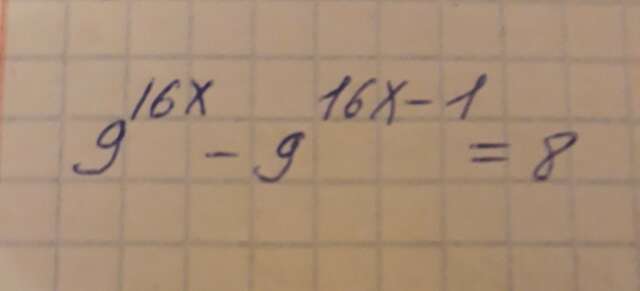 9^{16x} - 9^{16x-1} = 8